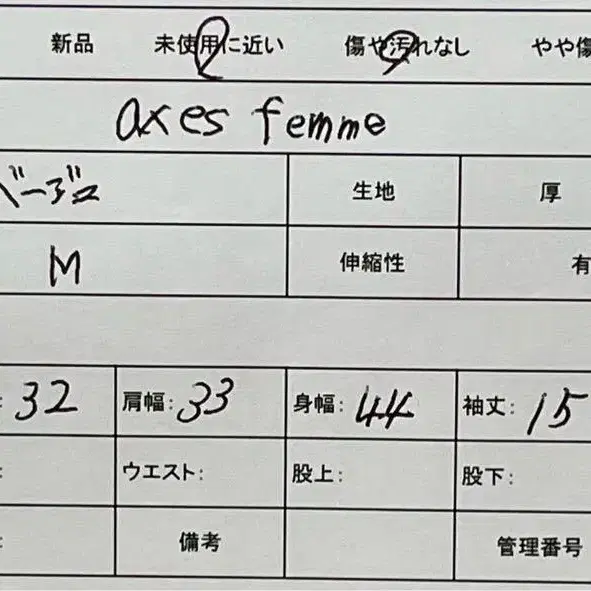 新品 未使用に近い 傷や汚れなし やや傷
axes femme
ベージュ 生地 厚
M 伸縮性 有
: 32 肩幅: 33 身幅: 44 袖丈: 15
: ウエスト: 股上: 股下:
: 備考 管理番号